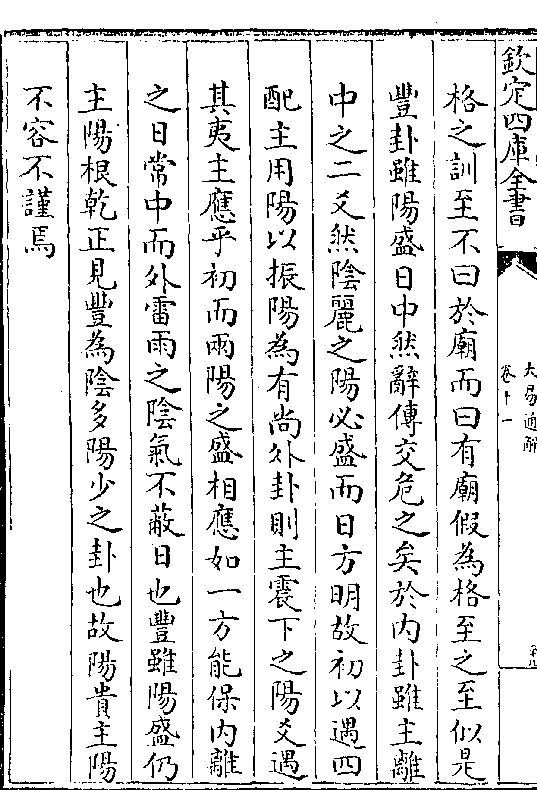 欽定四庫全書
大易通解
卷十一
格之訓至不曰於廟而曰有廟假為格至之至似是
豐卦雖陽盛日中然辭傳交危之矣於内卦雖主離
中之二爻然陰麗之陽必盛而日方明故初以遇四
配主用陽以振陽為有尚外卦則主震下之陽爻遇
其夷主應乎初而兩陽之盛相應如一方能保内離
之日常中而外雷雨之陰氣不蔽日也豐雖陽盛仍
主陽根乾正見豐為陰多陽少之卦也故陽貴主陽
不容不謹焉